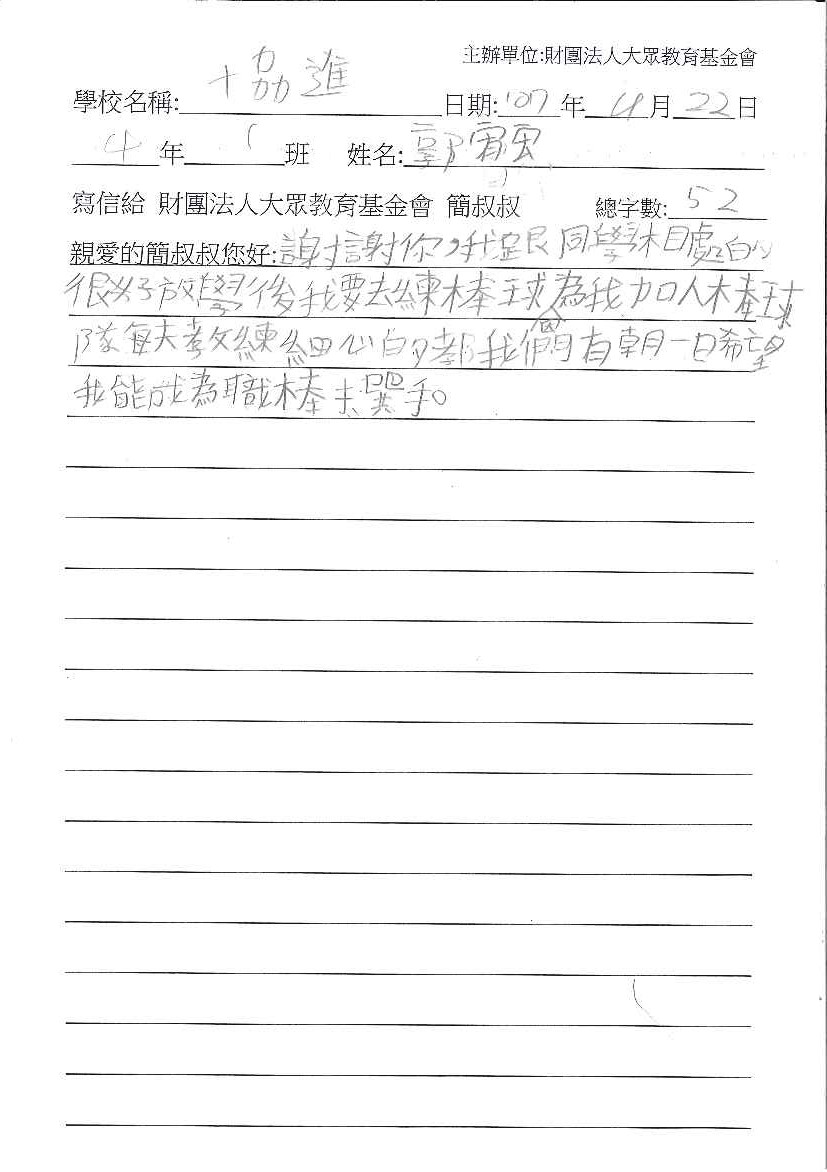 主辦單位:財團法人大眾教育基金會
學校名稱: 協進 日期: 107 年 4 月 22 日
4 年 1 班 姓名: 郭宥
寫信給 財團法人大眾教育基金會 簡叔叔 總字數: 52
親愛的簡叔叔您好:謝謝你,我跟同學相處的
很好放學後我要去練棒球因為我加入棒球
隊每天教練細心的教我們有朝一日希望
我能成為職棒選手。